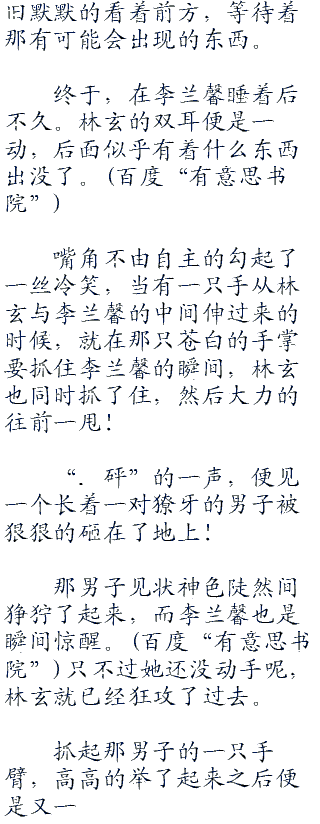 旧默默的看着前方，等待着
那有可能会出现的东西。
终于，在李兰馨睡着后
不久。林玄的双耳便是一
动，后面似乎有着什么东西
出没了。(百度“有意思书
院”)
嘴角不由自主的勾起了
一丝冷笑，当有一只手从林
玄与李兰馨的中间伸过来的
时候，就在那只苍白的手掌
要抓住李兰馨的瞬间，林玄
也同时抓了住，然后大力的
往前一甩！
“．砰”的一声，便见
一个长着一对獠牙的男子被
狠狠的砸在了地上！
那男子见状神色陡然间
狰狞了起来，而李兰馨也是
瞬间惊醒。(百度“有意思书
院”)只不过她还没动手呢，
林玄就已经狂攻了过去。
抓起那男子的一只手
臂，高高的举了起来之后便
是又一